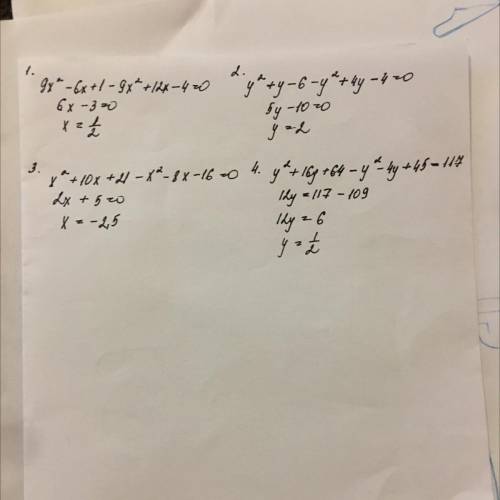 1.
9x² - 6x + 1 - 9x² + 12x - 4 = 0
6x - 3 = 0
x = 1/2
2.
y² + y - 6 - y² + 4y - 4 = 0
5y - 10 = 0
y = 2
3.
x² + 10x + 21 - x² - 8x - 16 = 0
2x + 5 = 0
x = -2,5
4. y² + 16y + 64 - y² - 4y + 45 = 117
12y = 117 - 109
12y = 6
y = 1/2